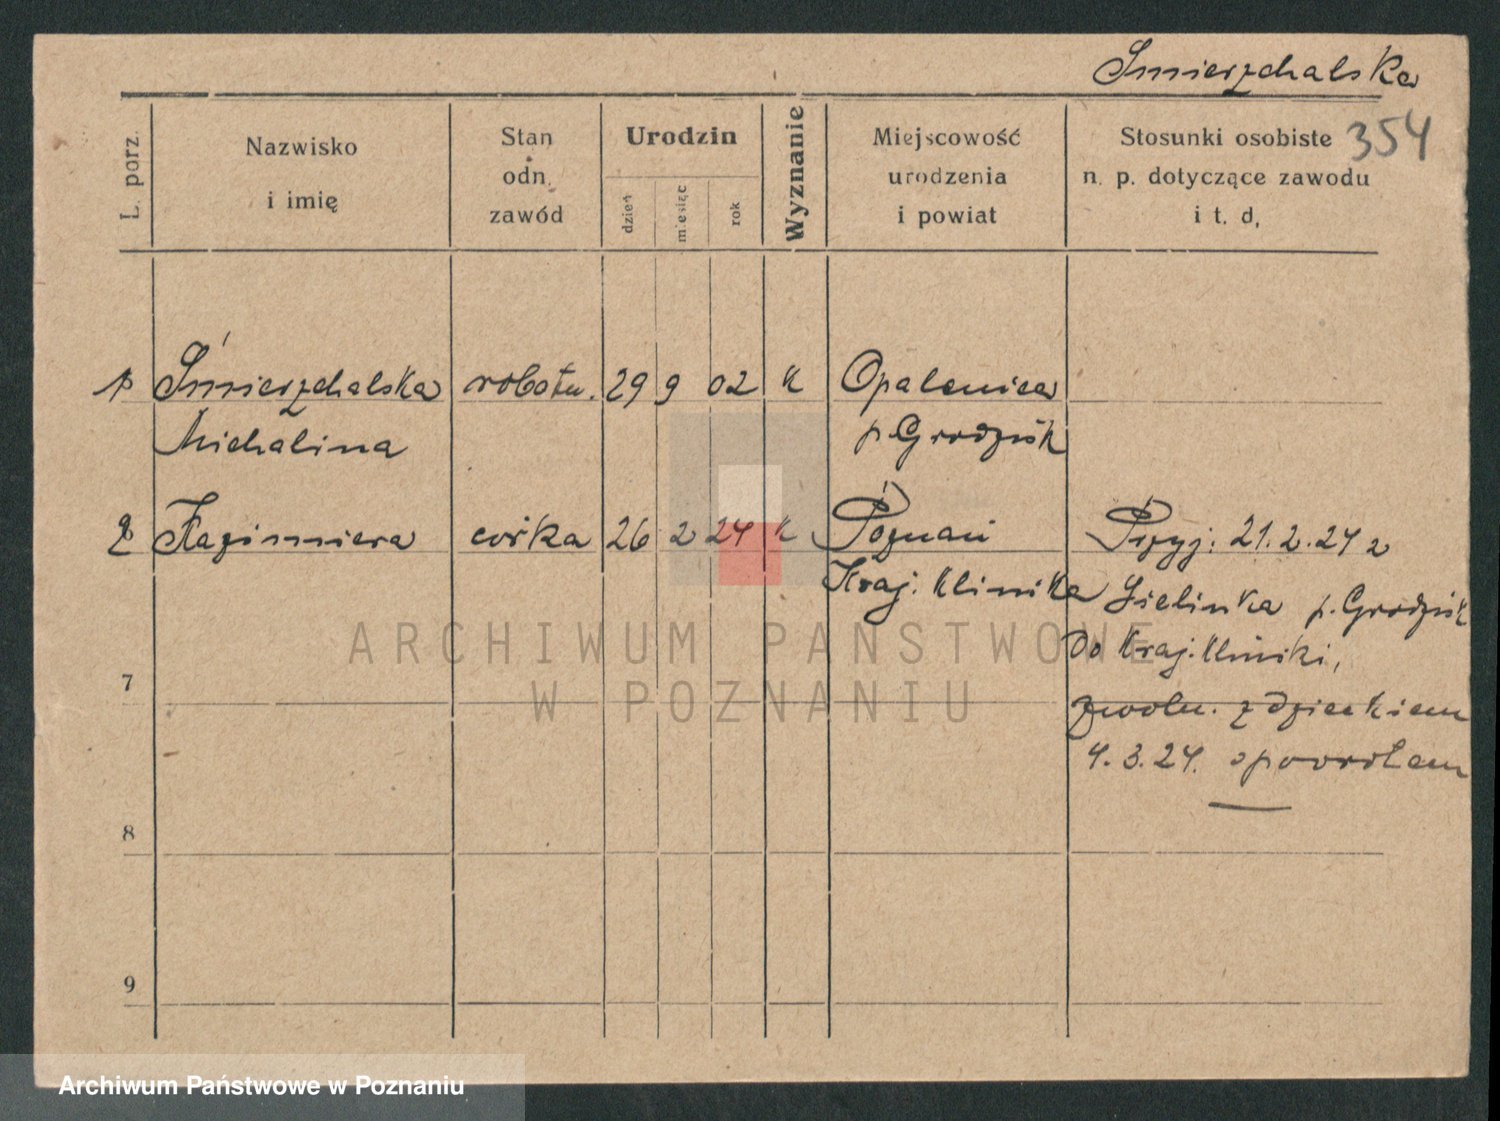 Śmierzchalska
354
L. porz.
Nazwisko
i imię
Stan
odn.
zawód
Urodzin
dzień
miesiąc
rok
Wyznanie
Miejscowość
urodzenia
i powiat
Stosunki osobiste
n. p. dotyczące zawodu
i t. d,
1 Śmierzchalska robotn. 29 9 02 k Opalenica
Michalina p. Grodzisk
2 Kazimiera córka 26 2 24 k Poznań Przyj: 21.2.24 z
Kraj. Klinika Zielinka p. Grodzisk
do Kraj. Kliniki,
zwoln. z dzieckiem
4.3.24. z powrotem
7
8
9
ARCHIWUM PAŃSTWOWE
W POZNANIU
Archiwum Państwowe w Poznaniu